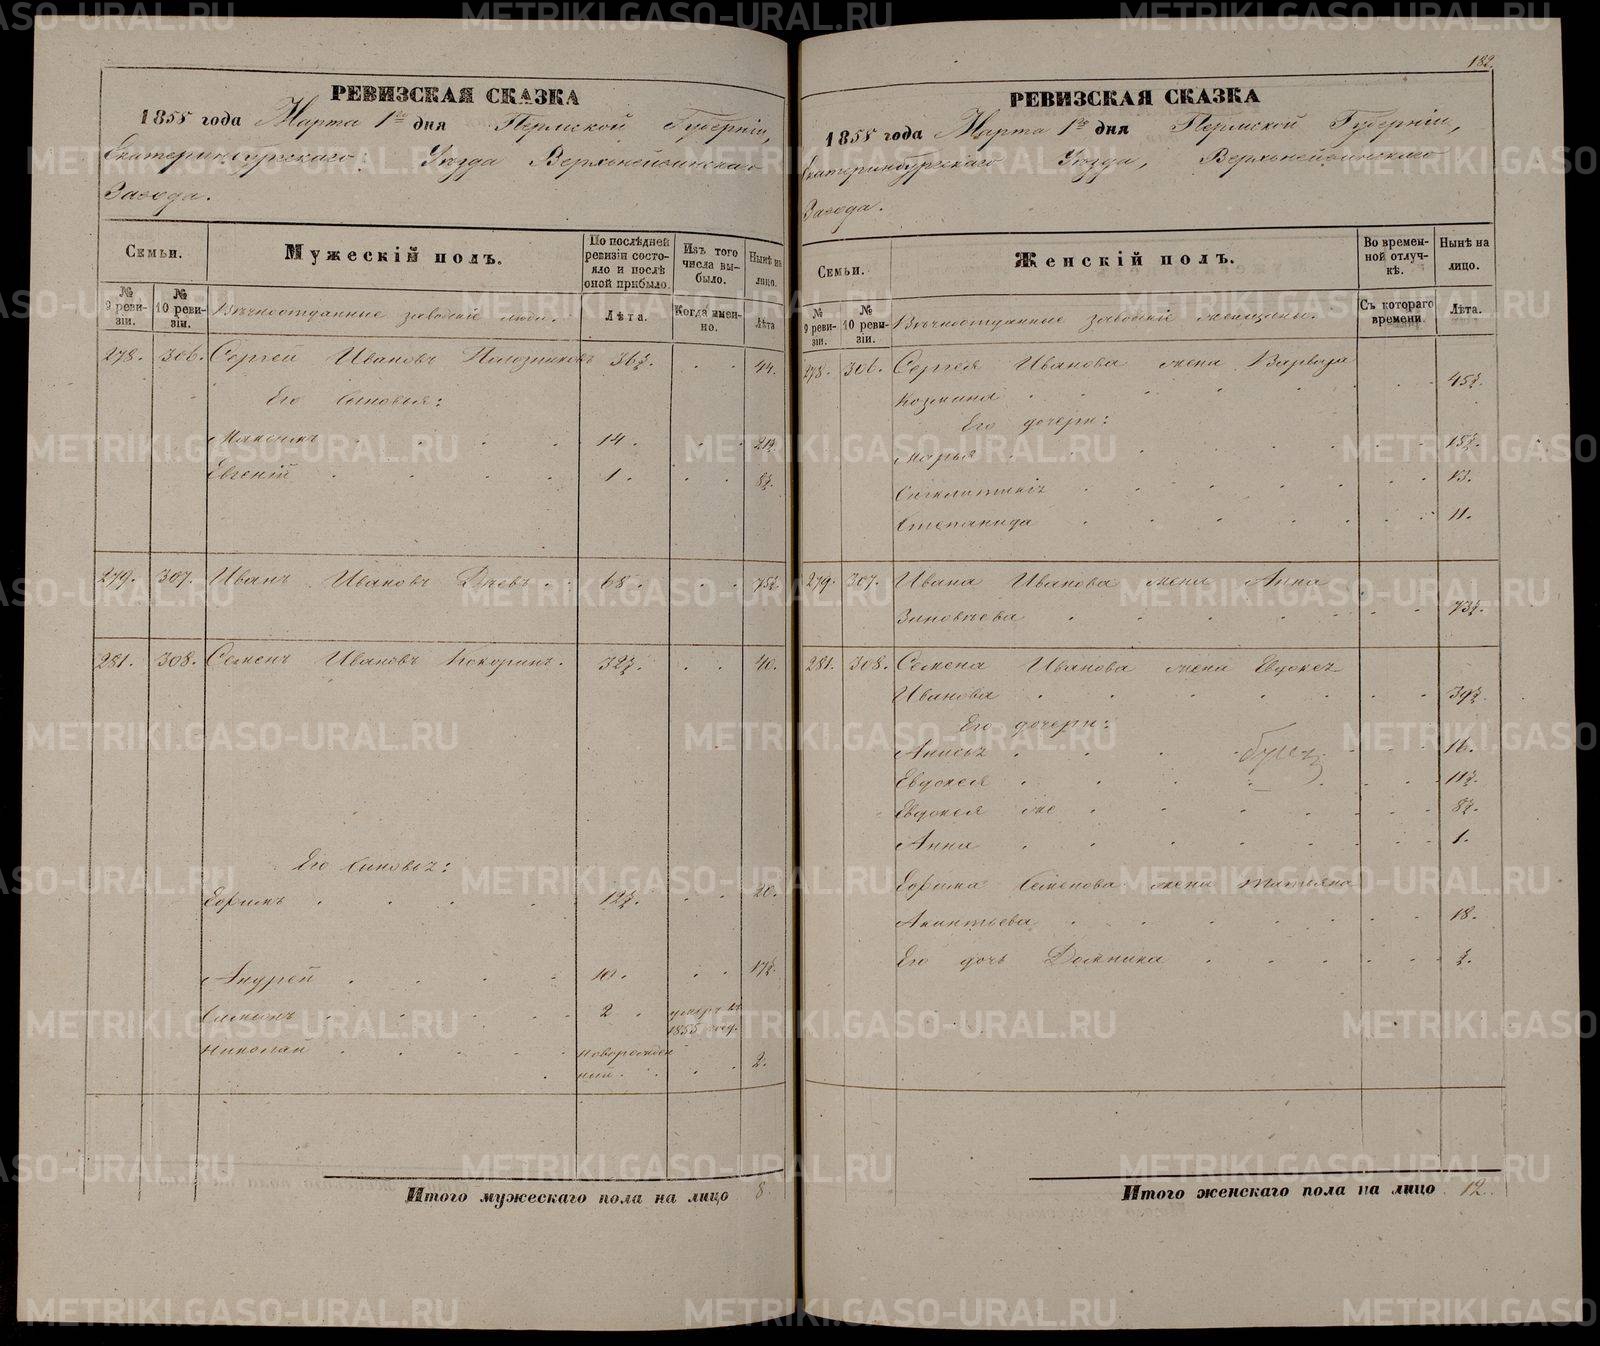 РЕВИЗСКАЯ СКАЗКА
1858 года Марта 1го дня Пермской Губерніи,
Екатеринбургскаго Уѣзда Верхънейвинскаго
Завода.
Семьи.
Мужескій полъ.
По послѣдней ревизіи состояло и послѣ оной прибыло.
Изъ того числа выбыло.
Нынѣ на лицо.
№ 9 ревизіи.
№ 10 ревизіи.
Вѣчноотданные заводскіе люди.
Лѣта.
Когда именно.
Лѣта
278. 306. Сергей Ивановъ 36½. 44.
Его сыновья:
Максимъ 14. 21½
Евгеній 1. 8½.
279. 307. Иванъ Ивановъ 68. 75½
281. 308. Семенъ Ивановъ Кокоринъ. 32½. 40.
Его сыновьѣ:
Ефимъ 12½. 20.
Андрей 10. 17½.
2 умеръ въ
1855 году.
Николай новорожден
ный. 2.
Итого мужескаго пола на лицо 8.
182.
РЕВИЗСКАЯ СКАЗКА
1858 года Марта 1го дня Пермской Губерніи,
Екатеринбургскаго Уѣзда, Верхънейвинскаго
Завода.
Семьи.
Женскій полъ.
Во временной отлучкѣ.
Нынѣ на лицо.
№ 9 ревизіи.
№ 10 ревизіи.
Вѣчноотданные заводскіе женщины.
Съ котораго времени
Лѣта.
278. 306. Сергея Иванова жена Варвара
Козмина 45½.
Его дочери:
Марья 15½.
13.
Степанида 11.
279. 307. Ивана Иванова жена Анна
Зиновьева 73½.
281. 308. Семена Иванова жена
Иванова 39½.
Его дочери:
16.
Евдокея 11½.
Евдокея же 8½.
Анна 1.
Ефима Семенова жена Татьяна
18.
Его дочь Домника ½.
Итого женскаго пола на лицо 12.
METRIKI.GASO-URAL.RU